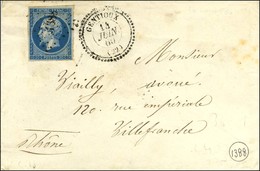 GENTIOUX
14
JUIN
60
(22)
Monsieur
Vialilly, avoué
120. rue impériale
Villefranche
Rhône
1398